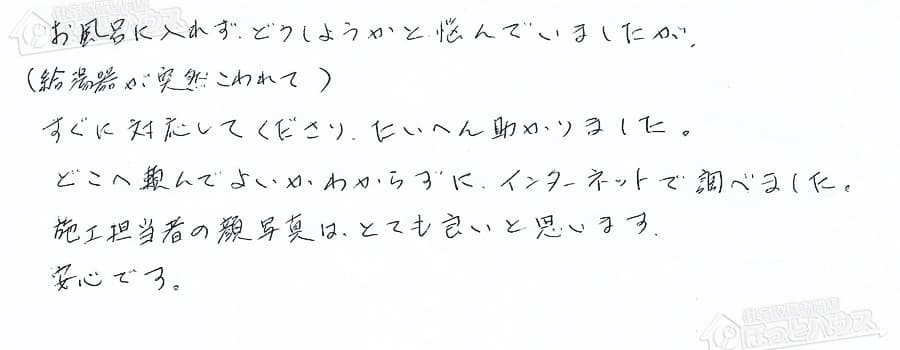 お風呂に入れず、どうしようかと悩んでいましたが、
(給湯器が突然こわれて)
すぐに対応してくださり、たいへん助かりました。
どこへ頼んでよいかわからずに、インターネットで調べました。
施工担当者の顔写真は、とても良いと思います。
安心です。
ほっとハウス